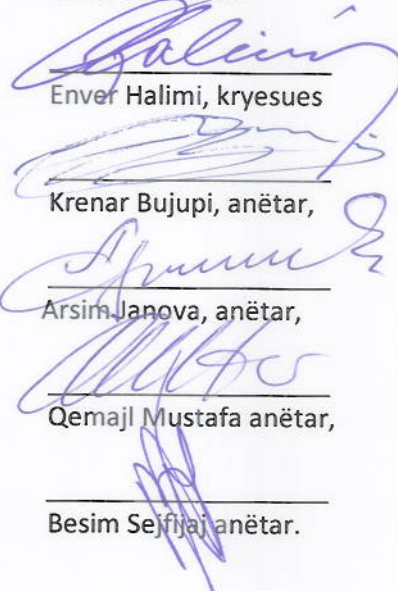 Enver Halimi, kryesues
Krenar Bujupi, anëtar,
Arsim Janova, anëtar,
Qemajl Mustafa anëtar,
Besim Sejfijaj anëtar.